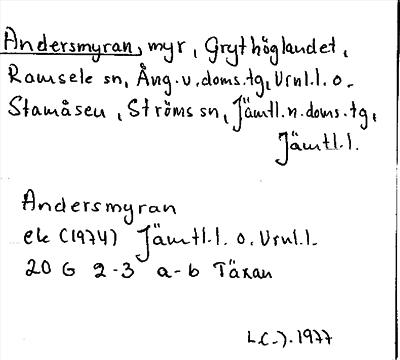 Andersmyran, myr, Grythöglandet,
Ramsele sn, Ång.v.doms.tg, Vrnl.l. o.
Stamåsen, Ströms sn, Jämtl.n.doms.tg,
Jämtl.l.
Andersmyran
ek (1974) Jämtl.l. o. Vrnl.l.
20 G 2-3 a-b Täxan
1977